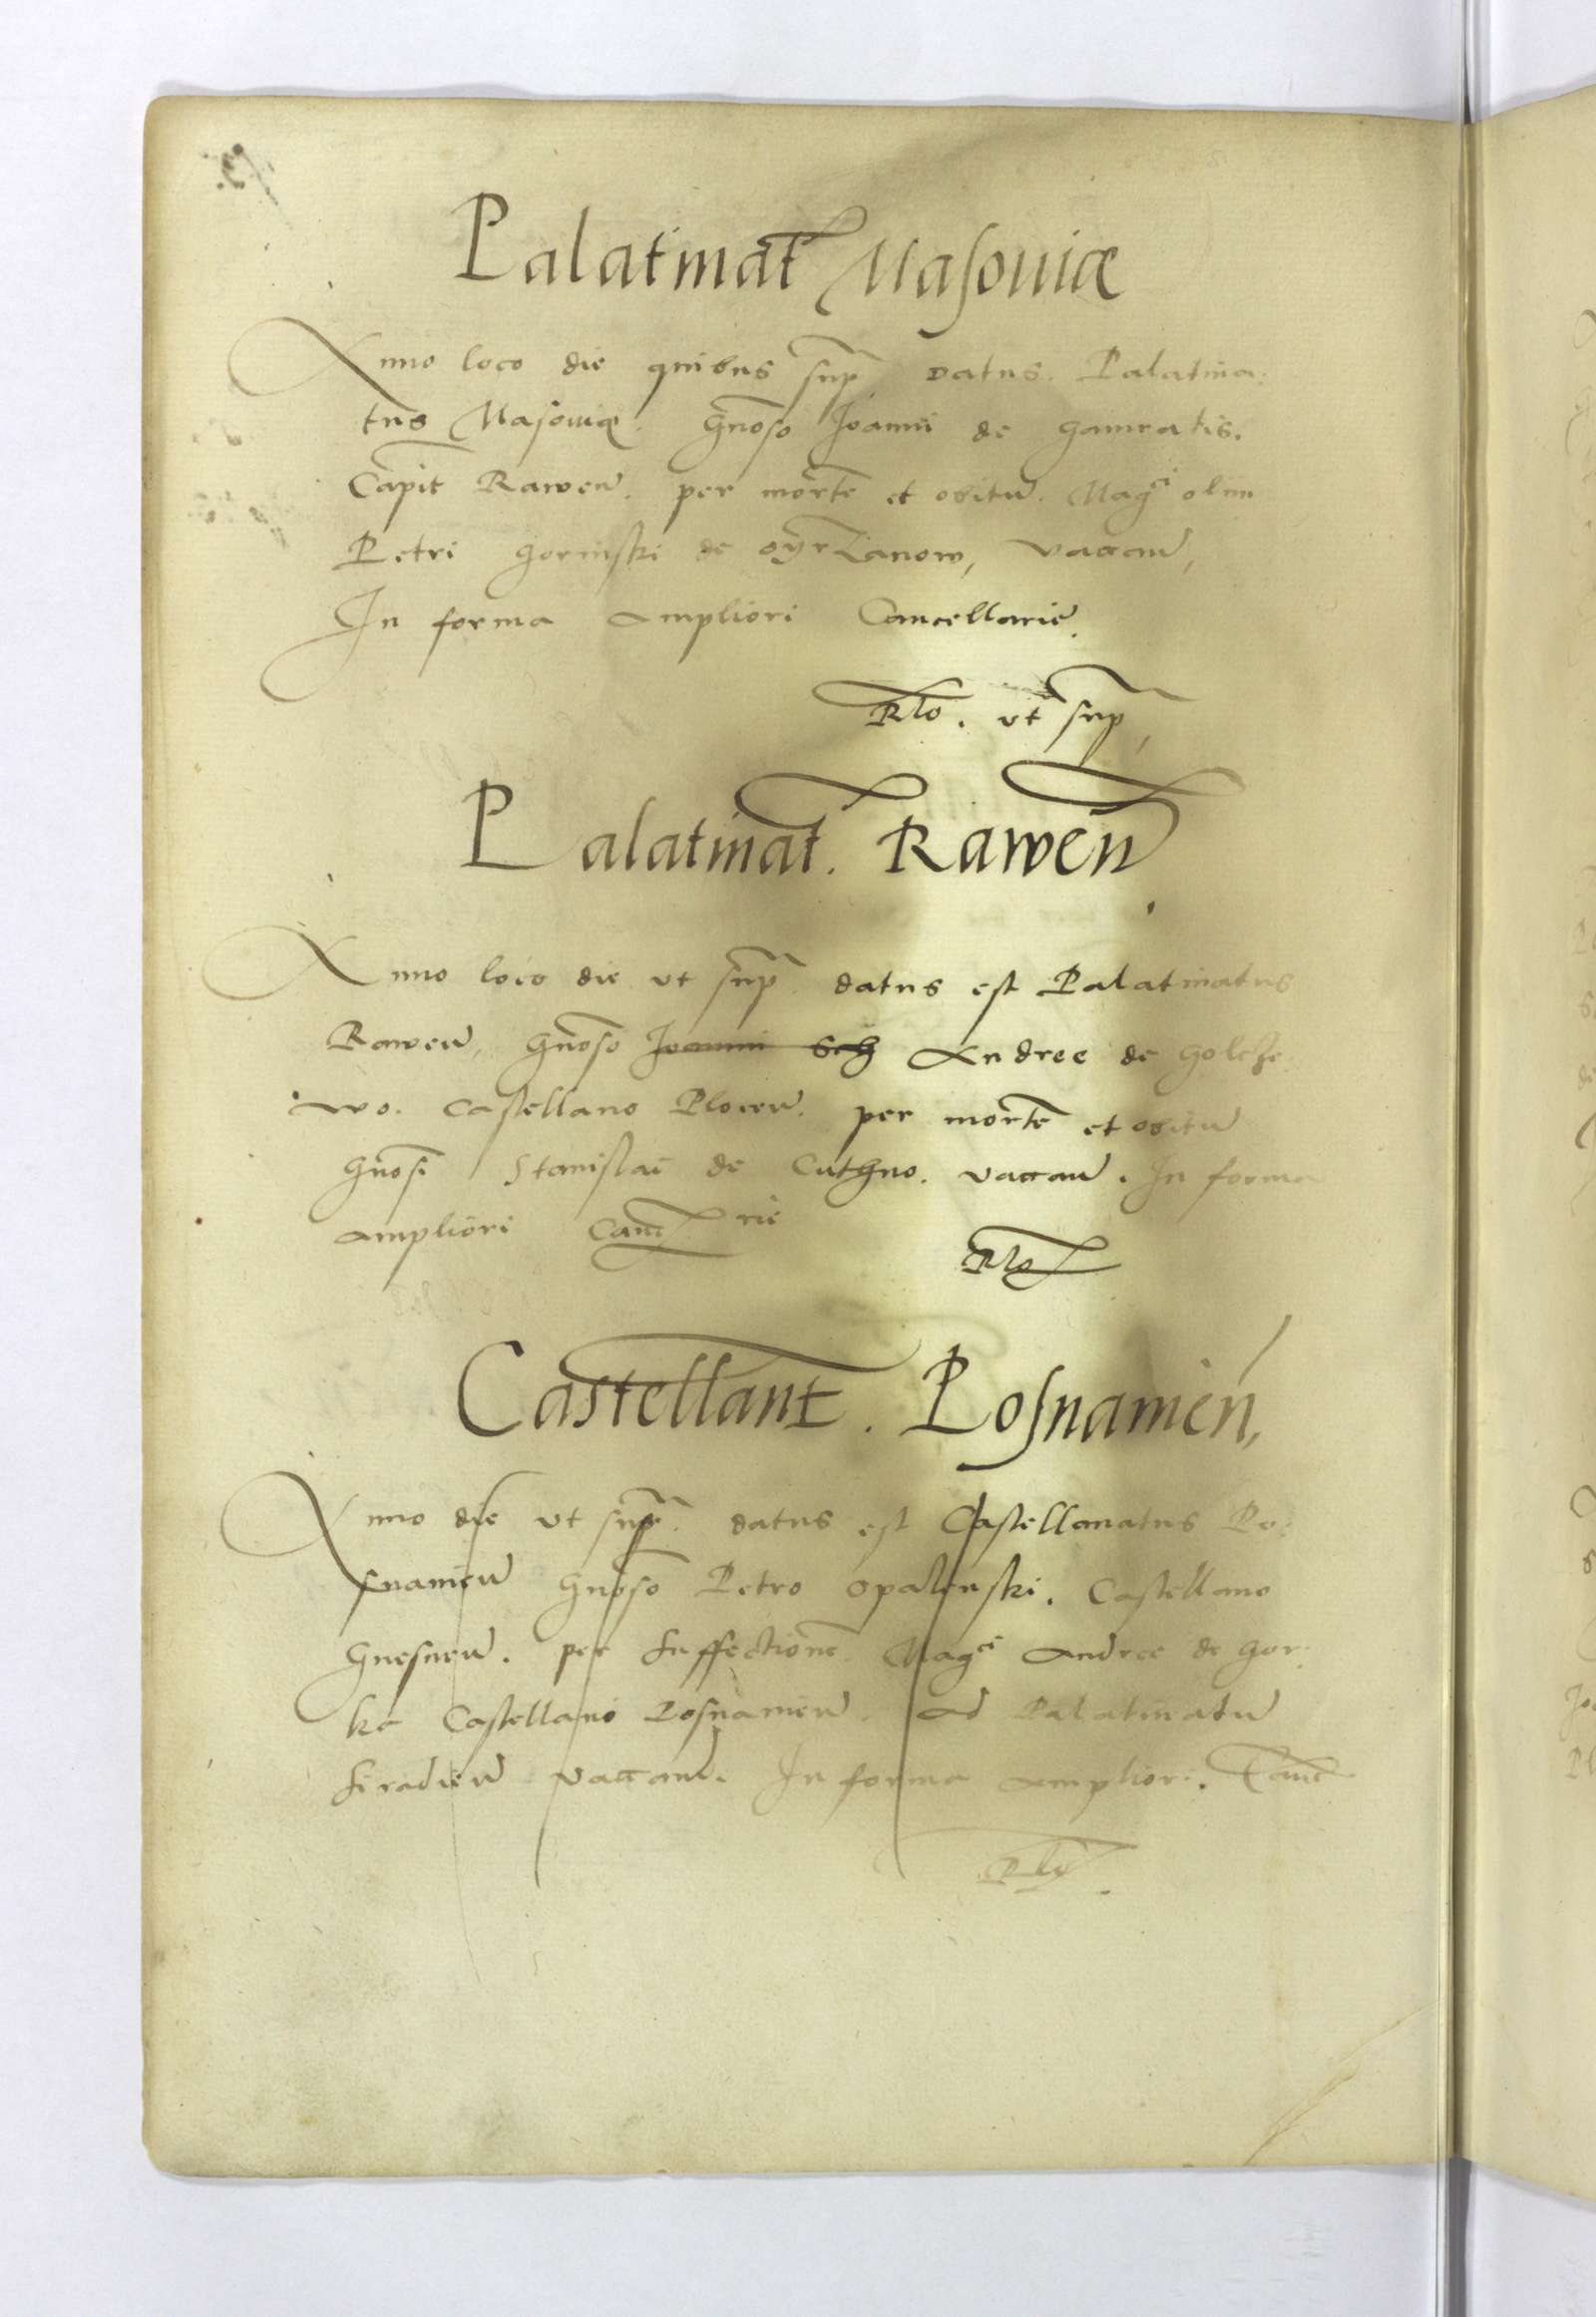 Palatinat Masouiæ
Anno loco die quibus sup datus. Palatina:
tus Masouiæ. Gnoso Joanni de gamratis.
Capit Rawen. per morte et obitu. Magci olim
Petri gorinski de oyrzanow, vaccan,
In forma ampliori Cancellarie.
Rlo. vt sup
Palatinat. Rawen
Anno loco die vt sup datus est Palatinatus
Rawen, Gnoso Joanni Andree de golcze
wo. Castellano Plocen. per morte et obitu
Gnosi Stanislai de Cuthno. vaccan. In forma
ampliori Canc rie
Rlo
Castellant. Posnanien,
Anno die vt sup. datus est Castellanatus Po:
snanien Gnoso Petro opalenski. Castellano
Gnesnen. per suffectione. Magci Andree de Gor:
ka Castellani Posnanien. ad Palatinatu
siradien vaccan. In forma ampliori. Canc